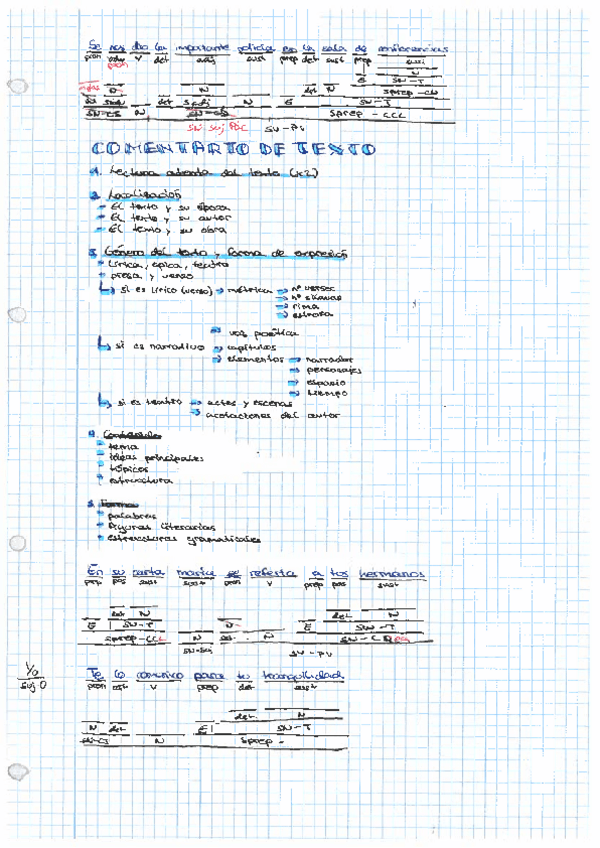 Se nos dio la importante noticia en la sala de conferencias
pron pron v det adj sust prep det sust prep sust
N
E SN-T
N det N Sprep-CN
det Sadj N E SN-T
SN-CI SN-Suj Sprep-CCL
SN Suj Pac SV-PV
COMENTARIO DE TEXTO
1. Lectura atenta del texto (x2)
2. Localización
- El texto y su época
- El texto y su autor
- El texto y su obra
3. Género del texto y forma de expresión
- Lírica, épica, teatro
- prosa y verso
↳ si es lírico (verso) → métrica → nº versos
→ nº sílabas
→ rima
→ estrofa
→ voz poética
↳ si es narrativo → capítulos
→ elementos → narrador
→ personajes
→ espacio
→ tiempo
↳ si es teatro → actos y escenas
→ acotaciones del autor
4. Contenido
- tema
- ideas principales
- tópicos
- estructura
5. Forma
- palabras
- figuras literarias
- estructuras gramaticales
En su carta María se refería a tus hermanos
prep pos sust sust pron v prep pos sust
det N N det N
E SN-T E SN-T
Sprep-CCL N N
SN-Suj SV-PV
Te lo comunico para tu tranquilidad
pron v prep det sust
Yo
Suj O
det N
N det E SN-T
N Sprep-